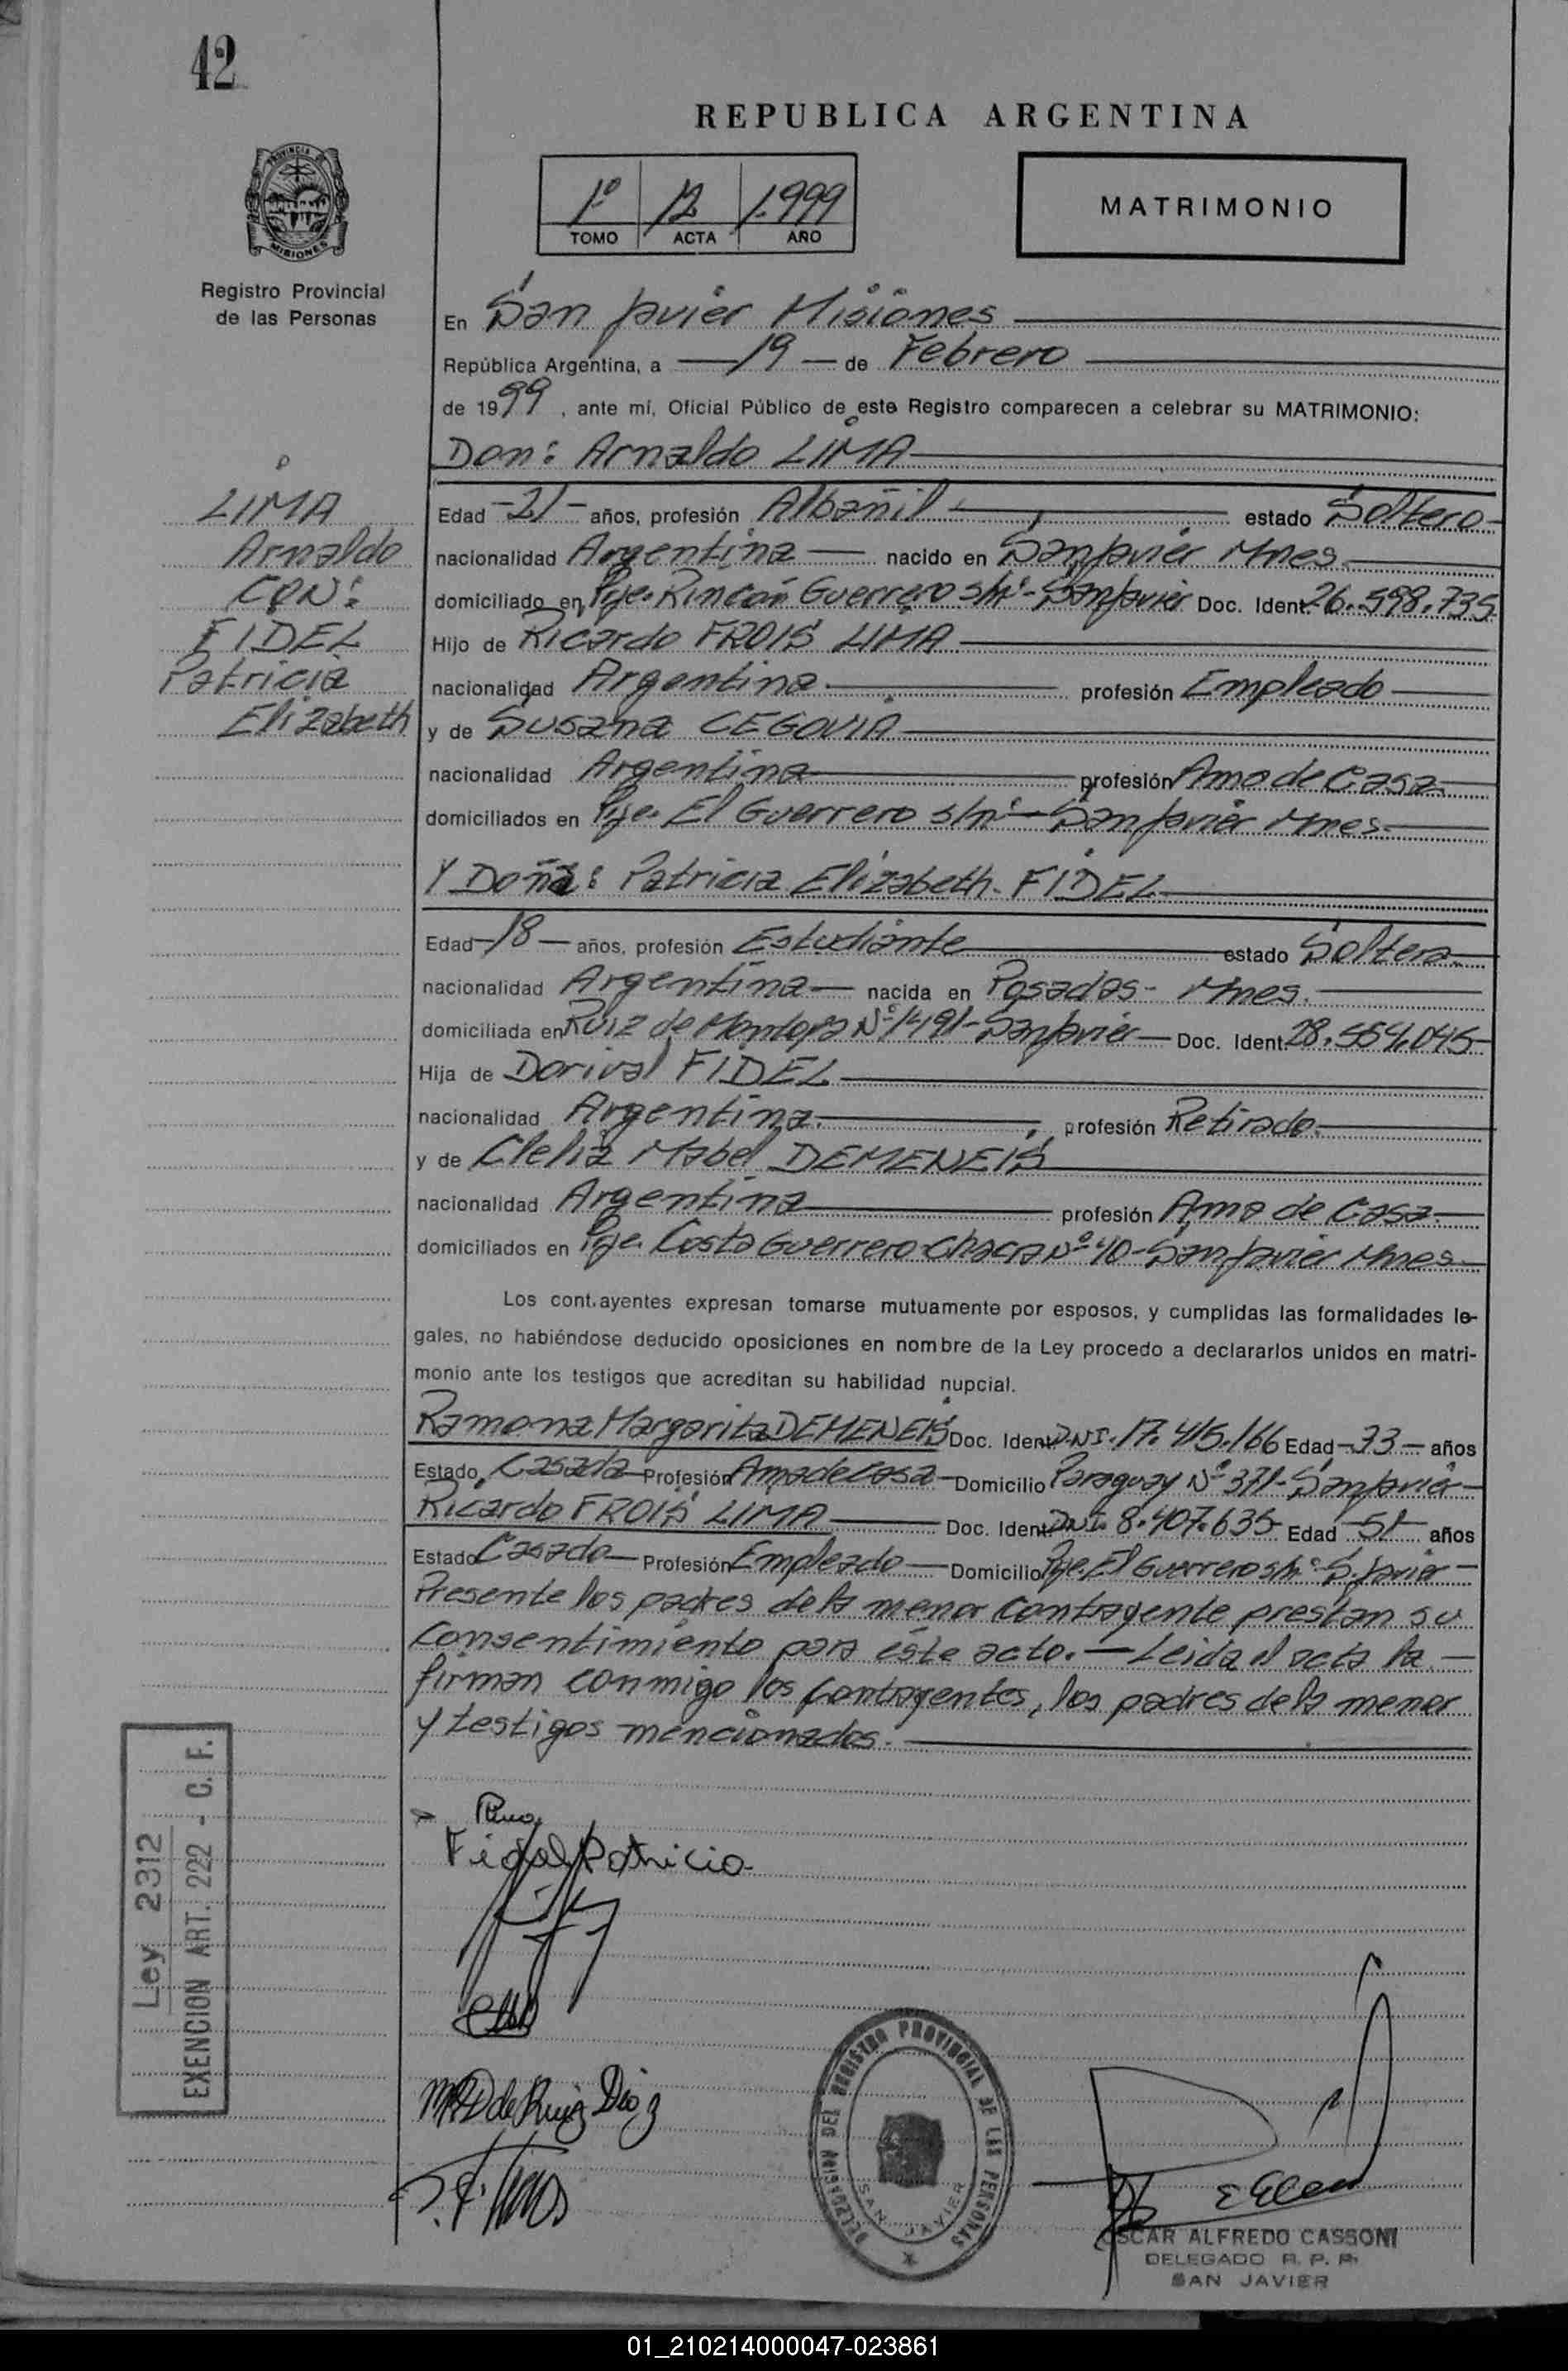 42
REPUBLICA ARGENTINA
PROVINCIA DE
MISIONES
1º 12 1.999
TOMO ACTA AÑO
MATRIMONIO
Registro Provincial
de las Personas
En San Javier Misiones
República Argentina, a 19 de Febrero
de 1999, ante mí, Oficial Público de este Registro comparecen a celebrar su MATRIMONIO:
Don: Arnaldo LIMA
LIMA
Arnaldo
CON:
FIDEL
Patricia
Elizabeth
Edad -21- años, profesión Albañil estado Soltero
nacionalidad Argentina nacido en San Javier Mnes.
domiciliado en Pje. Rincón Guerrero s/nº - San Javier Doc. Ident. 26.598.735
Hijo de Ricardo FROIS LIMA
nacionalidad Argentina profesión Empleado
y de Susana CEGOVIA
nacionalidad Argentina profesión Ama de Casa
domiciliados en Pje. El Guerrero s/nº - San Javier Mnes.
Y Doña: Patricia Elizabeth FIDEL
Edad -18- años, profesión Estudiante estado Soltera
nacionalidad Argentina nacida en Posadas - Mnes.
domiciliada en Ruiz de Montoya Nº 1491 - San Javier Doc. Ident. 28.554.045
Hija de Dorival FIDEL
nacionalidad Argentina profesión Retirado
y de Clelia Mabel DEMENEIS
nacionalidad Argentina profesión Ama de Casa
domiciliados en Pje. Costa Guerrero Chacra Nº 40 - San Javier Mnes
Los cont.ayentes expresan tomarse mutuamente por esposos, y cumplidas las formalidades le-
gales, no habiéndose deducido oposiciones en nombre de la Ley procedo a declararlos unidos en matri-
monio ante los testigos que acreditan su habilidad nupcial.
Ramona Margarita DEMENEIS Doc. Ident. D.N.I. 17.415.166 Edad -33- años
Estado Casada Profesión Ama de casa Domicilio Paraguay Nº 371 - San Javier
Ricardo FROIS LIMA Doc. Ident. D.N.I. 8.407.635 Edad 51 años
Estado Casado Profesión Empleado Domicilio Pje. El Guerrero s/nº S. Javier
Presente los padres de la menor contrayente prestan su
consentimiento para éste acto. - Leida el acta la
firman conmigo los contrayentes, los padres de la menor
y testigos mencionados.
Fidel Patricia
MRD de Ruiz Diaz
Ley 2312
EXENCION ART. 222 - C. F.
DELEGACION DEL REGISTRO PROVINCIAL DE LAS PERSONAS
SAN JAVIER
OSCAR ALFREDO CASSONI
DELEGADO R. P. P.
SAN JAVIER
01_210214000047-023861